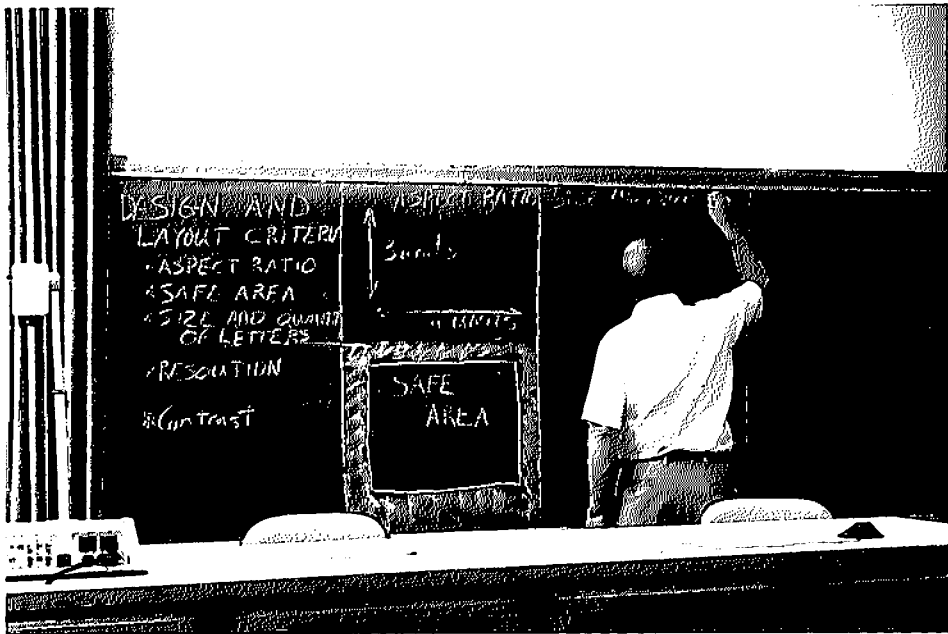 DESIGN AND
LAYOUT CRITERI
ASPECT RATIO
SAFE AREA
SIZE AND QUANTI
OF LETTERS
RESOLUTION
Contrast
ASPECT RATIO
3 units
UNITS
SAFE
AREA
Size